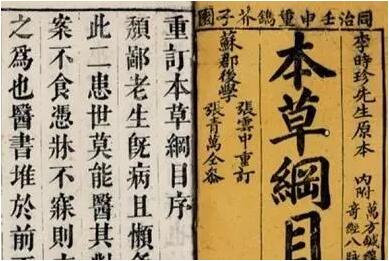 同治壬申重鐫芥子園
李時珍先生原本
內附
萬方鍼線
奇經八脉
本草綱目
蘇郡後學
張雲中重訂
張青萬仝參
重訂本草綱目序
頽鄙老生旣病且懶
此二患世莫能醫其
案不食憑牀不寐則
之爲也醫書堆於前